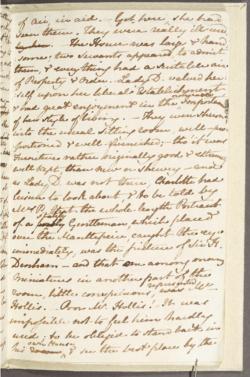 of air, in aid. - Got here, she had
seen them; They were really ill-used
The House was large & hand-
some; two Servants appeared, to admit
them, & every thing had a suitable air
of Property & Order. - Lady D. valued her-
self upon her liberal Establishment
& had great enjoyment in the importance
of her style of living. - They were shewn
into the usual sitting room, well-pro-
portioned & well-furnished; tho' it was
Furniture rather originally good & extremely
well kept, than new or shewey - and
as Lady D. was not there, Charlotte had
leisure to look about, & to be told by
Mrs P. that the whole-length Portrait
of a stately Gentleman, which placed
over the Mantlepiece, caught the eye
immediately, was the picture of Sir H.
Denham - and that one among many
Miniatures in another part of the
room, little conspicuous, represented Mr
Hollis. - Poor Mr Hollis! - It was
impossible not to feel him hardly
used; to be obliged to stand back in
his own House & see the best place by the